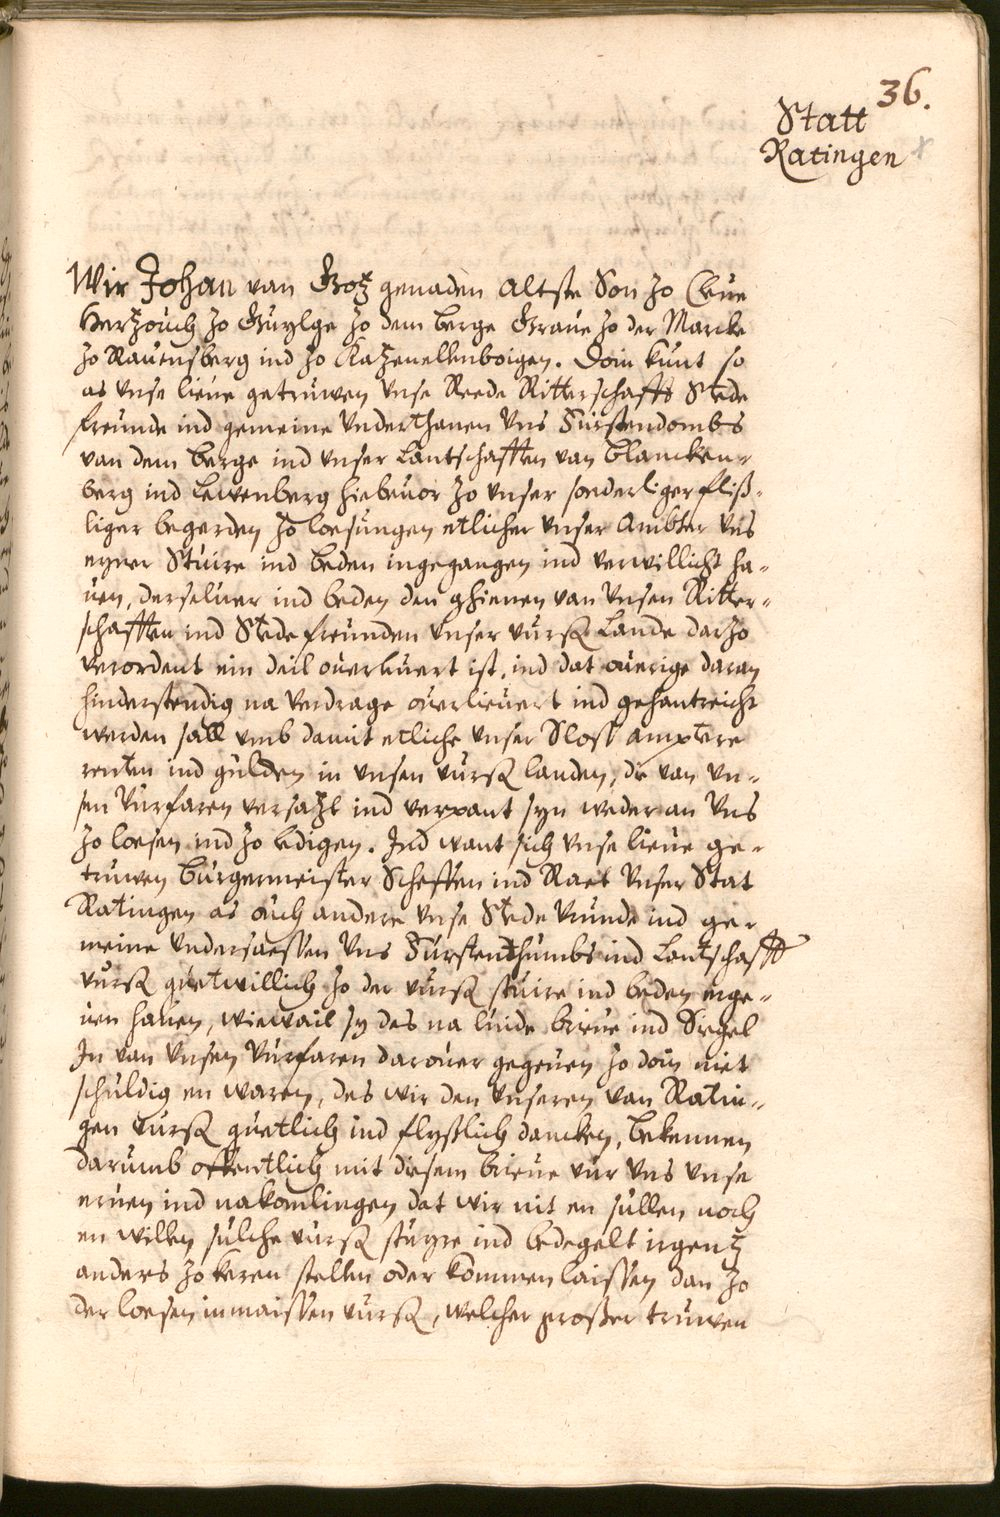 36.
Statt
Ratingen
Wir Johan van Gotz genaden Altste Son zo Cleue
Hertzouch zo Guylge zo dem berge Graue zo der Marcke
zo Rauensberg ind zo Katzenellenboigen. Doin kunt so
as vnse lieue getruwen vnse Reede Ritterschafft Stede
freunde ind gemeine Underthanen Vns Fürstendombs
van dem berge ind vnser Lantschafften van blancken-
berg ind Lewenberg hiebeuor zo vnser sonderliger fliß-
liger begerden zo loesungen etlicher vnser Ambter vns
eyner Stuire ind beden ingegangen ind verwillicht ha-
uen, derseluer ind beden den ghienen van Vnsen Ritter-
schafften ind Stede freunden vnser vurß Lande darzo
verordent ein deil ouerluert ist, ind dat ouerige daran
hinderstendig na verdrage ouerlieuert ind gehantreicht
werden sall vmb damit etliche vnser Sloß amptere
renten ind gulden in vnsen vurß landen, die van vn-
sen Vurfaren versatzt ind verpant syn weder an Vns
zo loesen ind zo ledigen. Ind want sich vnse lieue ge-
truwen burgermeister Scheffen ind Raet Vnser Stat
Ratingen as ouch andere vnse Stede Vrunde ind ge-
meine Undersaessen Vns Fürstenthumbs ind Lantschafft
vurß guetwillich zo der vurß stuire ind beden erge-
uen hauen, wiewail sy des na linde brieue ind Siegel
In van Vnsen Vurfaren darouer gegeuen zo doin niet
schuldig en waren, des wir den Vnseren van Ratin-
gen vurß guetlich ind flyßlich dancken, bekennen
darumb offentlich mit diesem brieue vur Vns Vnse
eruen ind nakomlingen dat wir nit en sullen noch
en willen sulche vurß stuyre ind bedegelt irgentz
anders zo keren stellen oder kommen laissen dan zo
der loesen inmaissen vurß, welcher großer truwen